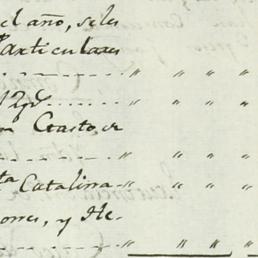 el año, se les
Particulares
- - - - - - - - - " " " "
12 „ - - - - - " " " "
n Crasto, e
- - - - - - - - " " " "
ta Catalina - " " " "
orres, y He-
- - - - - - - - " " " "